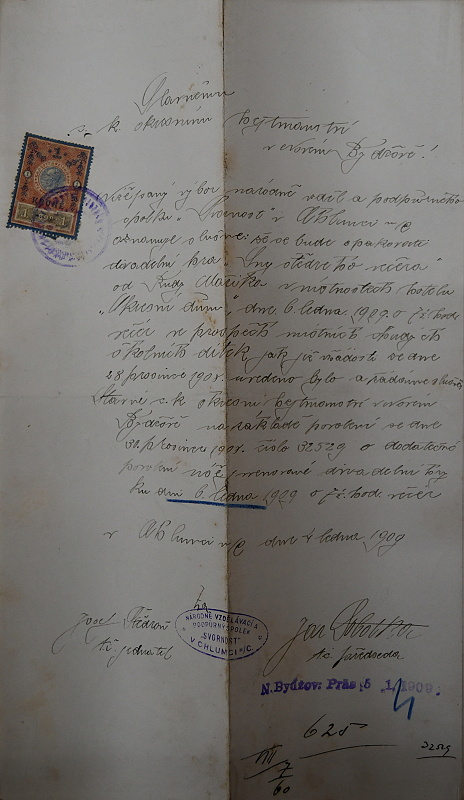 Slavnému
c. k. okresnímu hejtmanství
v Novém Bydžově!
1
Nížepsaný výbor národně vzděl a podpůrného
spolku "Svornost" v Chlumci n/C
oznamuje slušně že se bude opakovati
divadelní hra "Sny štědrého večera"
od Rudy Maříka v místnostech hotelu
"Okresní dům" dne 6. ledna 1909. o 7½ hod
večer ve prospěch místních chudých
okolních dítek jak již v žádosti ze dne
28 prosince 1908. uvedeno bylo a žádáme slušně
slavné c. k. okresní hejtmanství v Novém
Bydžově na základě povolení ze dne
31. prosince 1908. číslo 32529 o dodatečné
povolení níže jmenované divadelní hry
ku dni 6. ledna 1909 o 7½. hod. večer
v Chlumci n/C dne 4 ledna 1909
Josef
t. č. jednatel
Za
NÁRODNĚ VZDĚLÁVACÍ A
PODPŮRNÝ SPOLEK
"SVORNOST"
V CHLUMCI n/C.
Jan
t. č. předseda
N. Bydžov: Präs. 5 1. 1909.
628
32529
VII
7
60